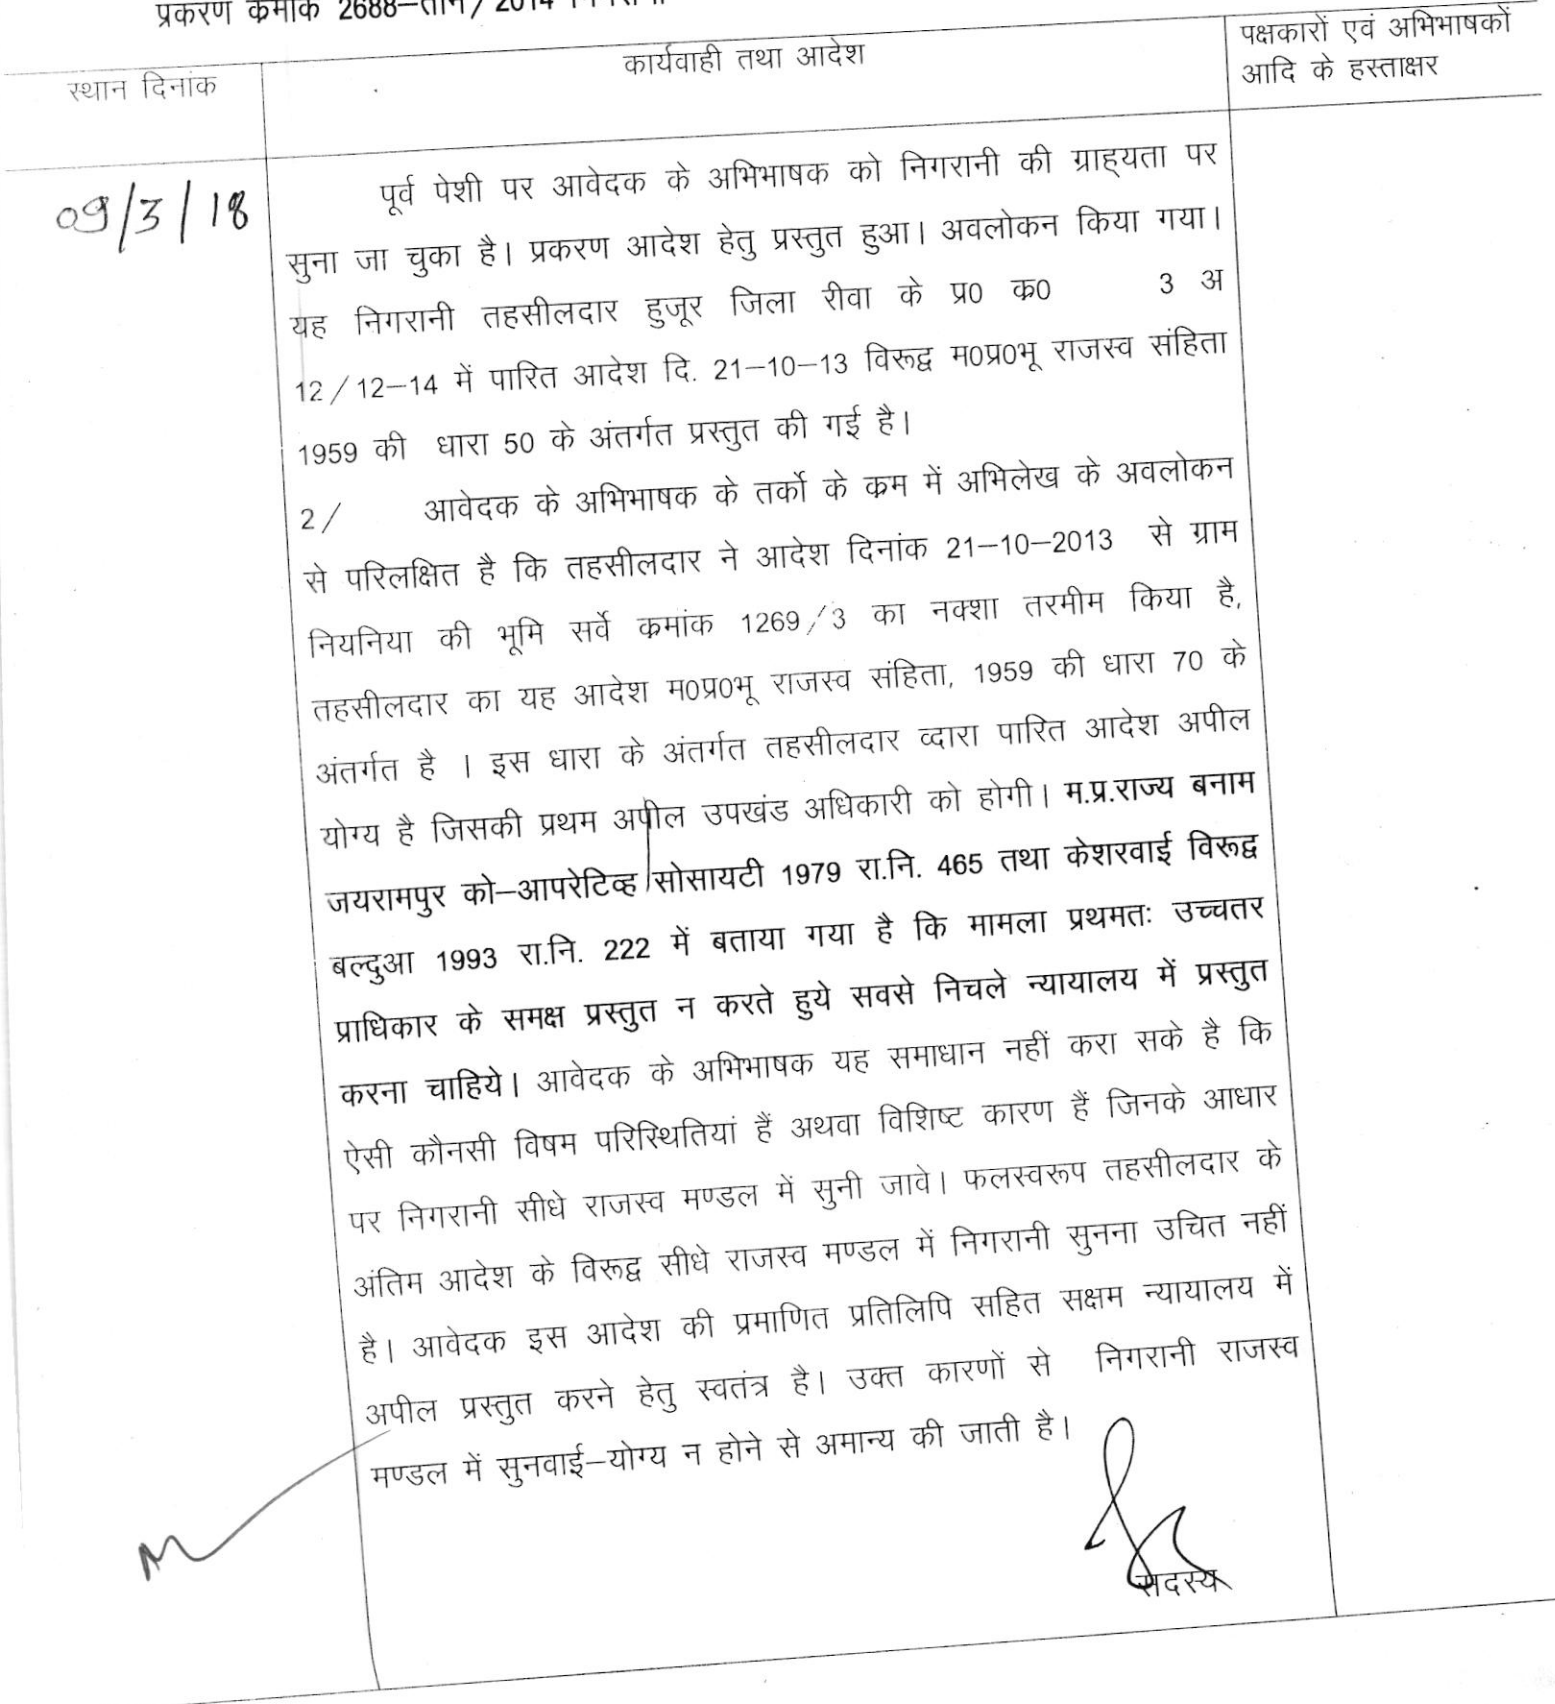 प्रकरण क्रमांक 2688–तीन/2014
स्थान दिनांक
कार्यवाही तथा आदेश
पक्षकारों एवं अभिभाषकों
आदि के हस्ताक्षर
09/3/18
पूर्व पेशी पर आवेदक के अभिभाषक को निगरानी की ग्राह्यता पर
सुना जा चुका है। प्रकरण आदेश हेतु प्रस्तुत हुआ। अवलोकन किया गया।
यह निगरानी तहसीलदार हुजूर जिला रीवा के प्र0 क्र0 3 अ
12/12–14 में पारित आदेश दि. 21–10–13 विरूद्व म0प्र0भू राजस्व संहिता
1959 की धारा 50 के अंतर्गत प्रस्तुत की गई है।
2/ आवेदक के अभिभाषक के तर्को के क्रम में अभिलेख के अवलोकन
से परिलक्षित है कि तहसीलदार ने आदेश दिनांक 21–10–2013 से ग्राम
नियनिया की भूमि सर्वे क्रमांक 1269/3 का नक्शा तरमीम किया है,
तहसीलदार का यह आदेश म0प्र0भू राजस्व संहिता, 1959 की धारा 70 के
अंतर्गत है । इस धारा के अंतर्गत तहसीलदार व्दारा पारित आदेश अपील
योग्य है जिसकी प्रथम अपील उपखंड अधिकारी को होगी। म.प्र.राज्य बनाम
जयरामपुर को–आपरेटिव्ह सोसायटी 1979 रा.नि. 465 तथा केशरवाई विरूद्व
बल्दुआ 1993 रा.नि. 222 में बताया गया है कि मामला प्रथमतः उच्चतर
प्राधिकार के समक्ष प्रस्तुत न करते हुये सवसे निचले न्यायालय में प्रस्तुत
करना चाहिये। आवेदक के अभिभाषक यह समाधान नहीं करा सके है कि
ऐसी कौनसी विषम परिस्थितियां हैं अथवा विशिष्ट कारण हैं जिनके आधार
पर निगरानी सीधे राजस्व मण्डल में सुनी जावे। फलस्वरूप तहसीलदार के
अंतिम आदेश के विरूद्व सीधे राजस्व मण्डल में निगरानी सुनना उचित नहीं
है। आवेदक इस आदेश की प्रमाणित प्रतिलिपि सहित सक्षम न्यायालय में
अपील प्रस्तुत करने हेतु स्वतंत्र है। उक्त कारणों से निगरानी राजस्व
मण्डल में सुनवाई–योग्य न होने से अमान्य की जाती है।
सदस्य